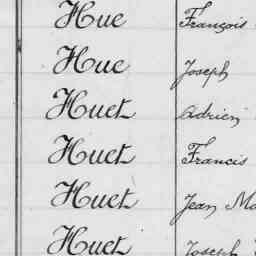 Hue François
Hue Joseph
Huet Adrien
Huet Francis
Huet Jean
Huet Joseph